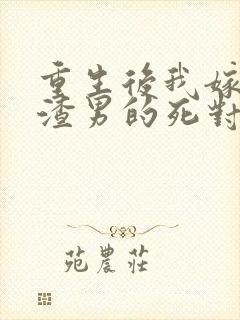 重生後我嫁
渣男的死對
苑農莊